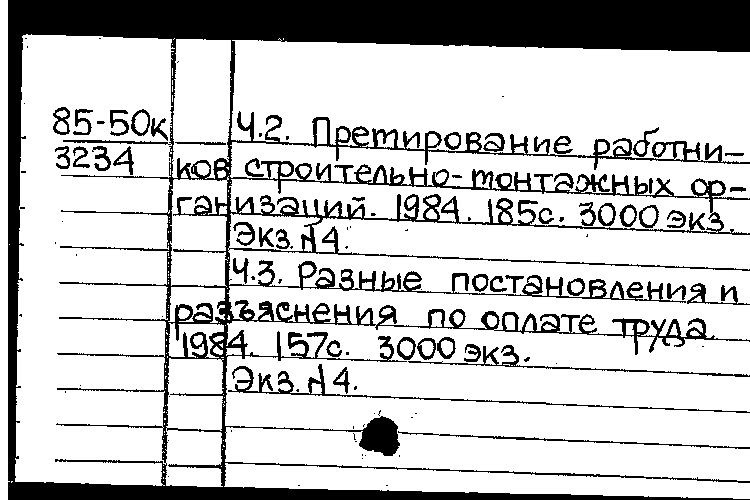 85-50к
3234
Ч.2. Премирование работни-
ков строительно-монтажных ор-
ганизаций. 1984. 185с. 3000 экз.
Экз. №4.
Ч.3. Разные постановления и
разъяснения по оплате труда.
1984. 157с. 3000 экз.
Экз. №4.